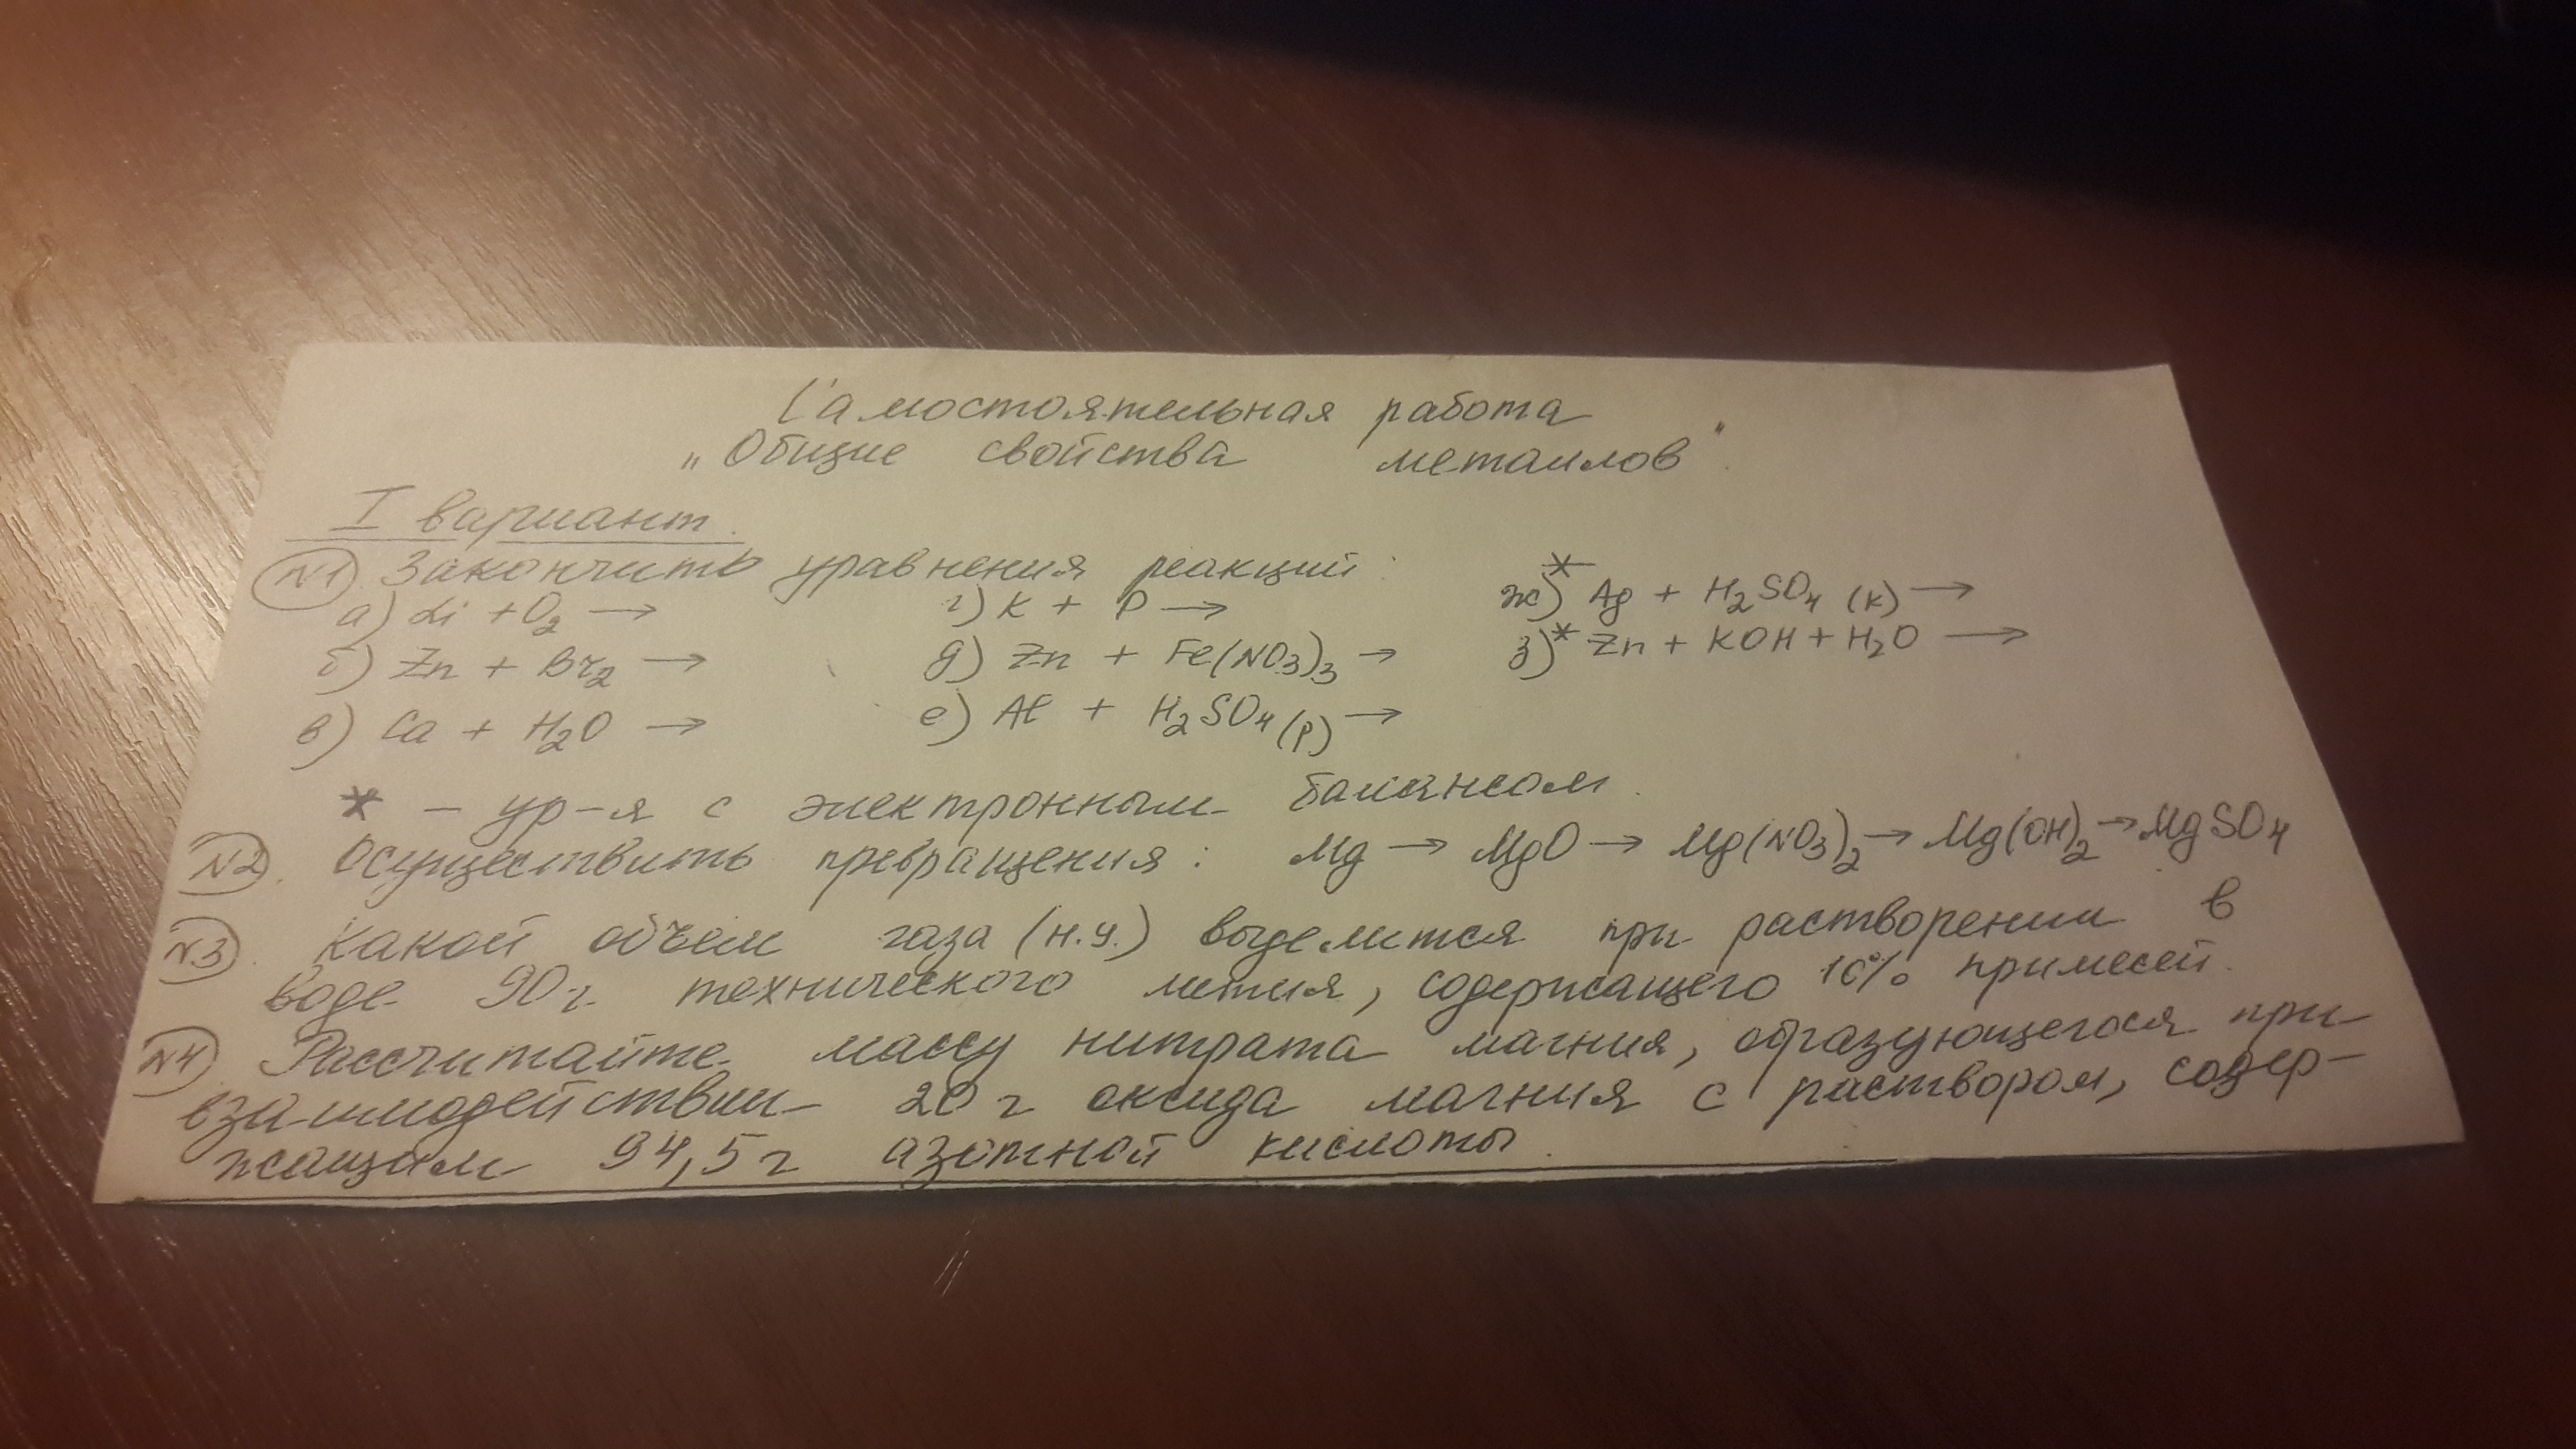 Самостоятельная работа
„Общие свойства металлов".
I вариант.
N1. Закончить уравнения реакций:
а) Li + O2 → г) K + P → ж)* Ag + H2SO4 (к) →
б) Zn + Br2 → д) Zn + Fe(NO3)3 → з)* Zn + KOH + H2O →
в) Ca + H2O → е) Al + H2SO4 (р) →
* – ур-я с электронным балансом.
N2. Осуществить превращения: Mg → MgO → Mg(NO3)2 → Mg(OH)2 → MgSO4
N3. Какой объем газа (н.у.) выделится при растворении в
воде 90 г технического лития, содержащего 10% примесей.
N4 Рассчитайте массу нитрата магния, образующегося при
взаимодействии 20 г оксида магния с раствором, содер-
жащим 94,5 г азотной кислоты.